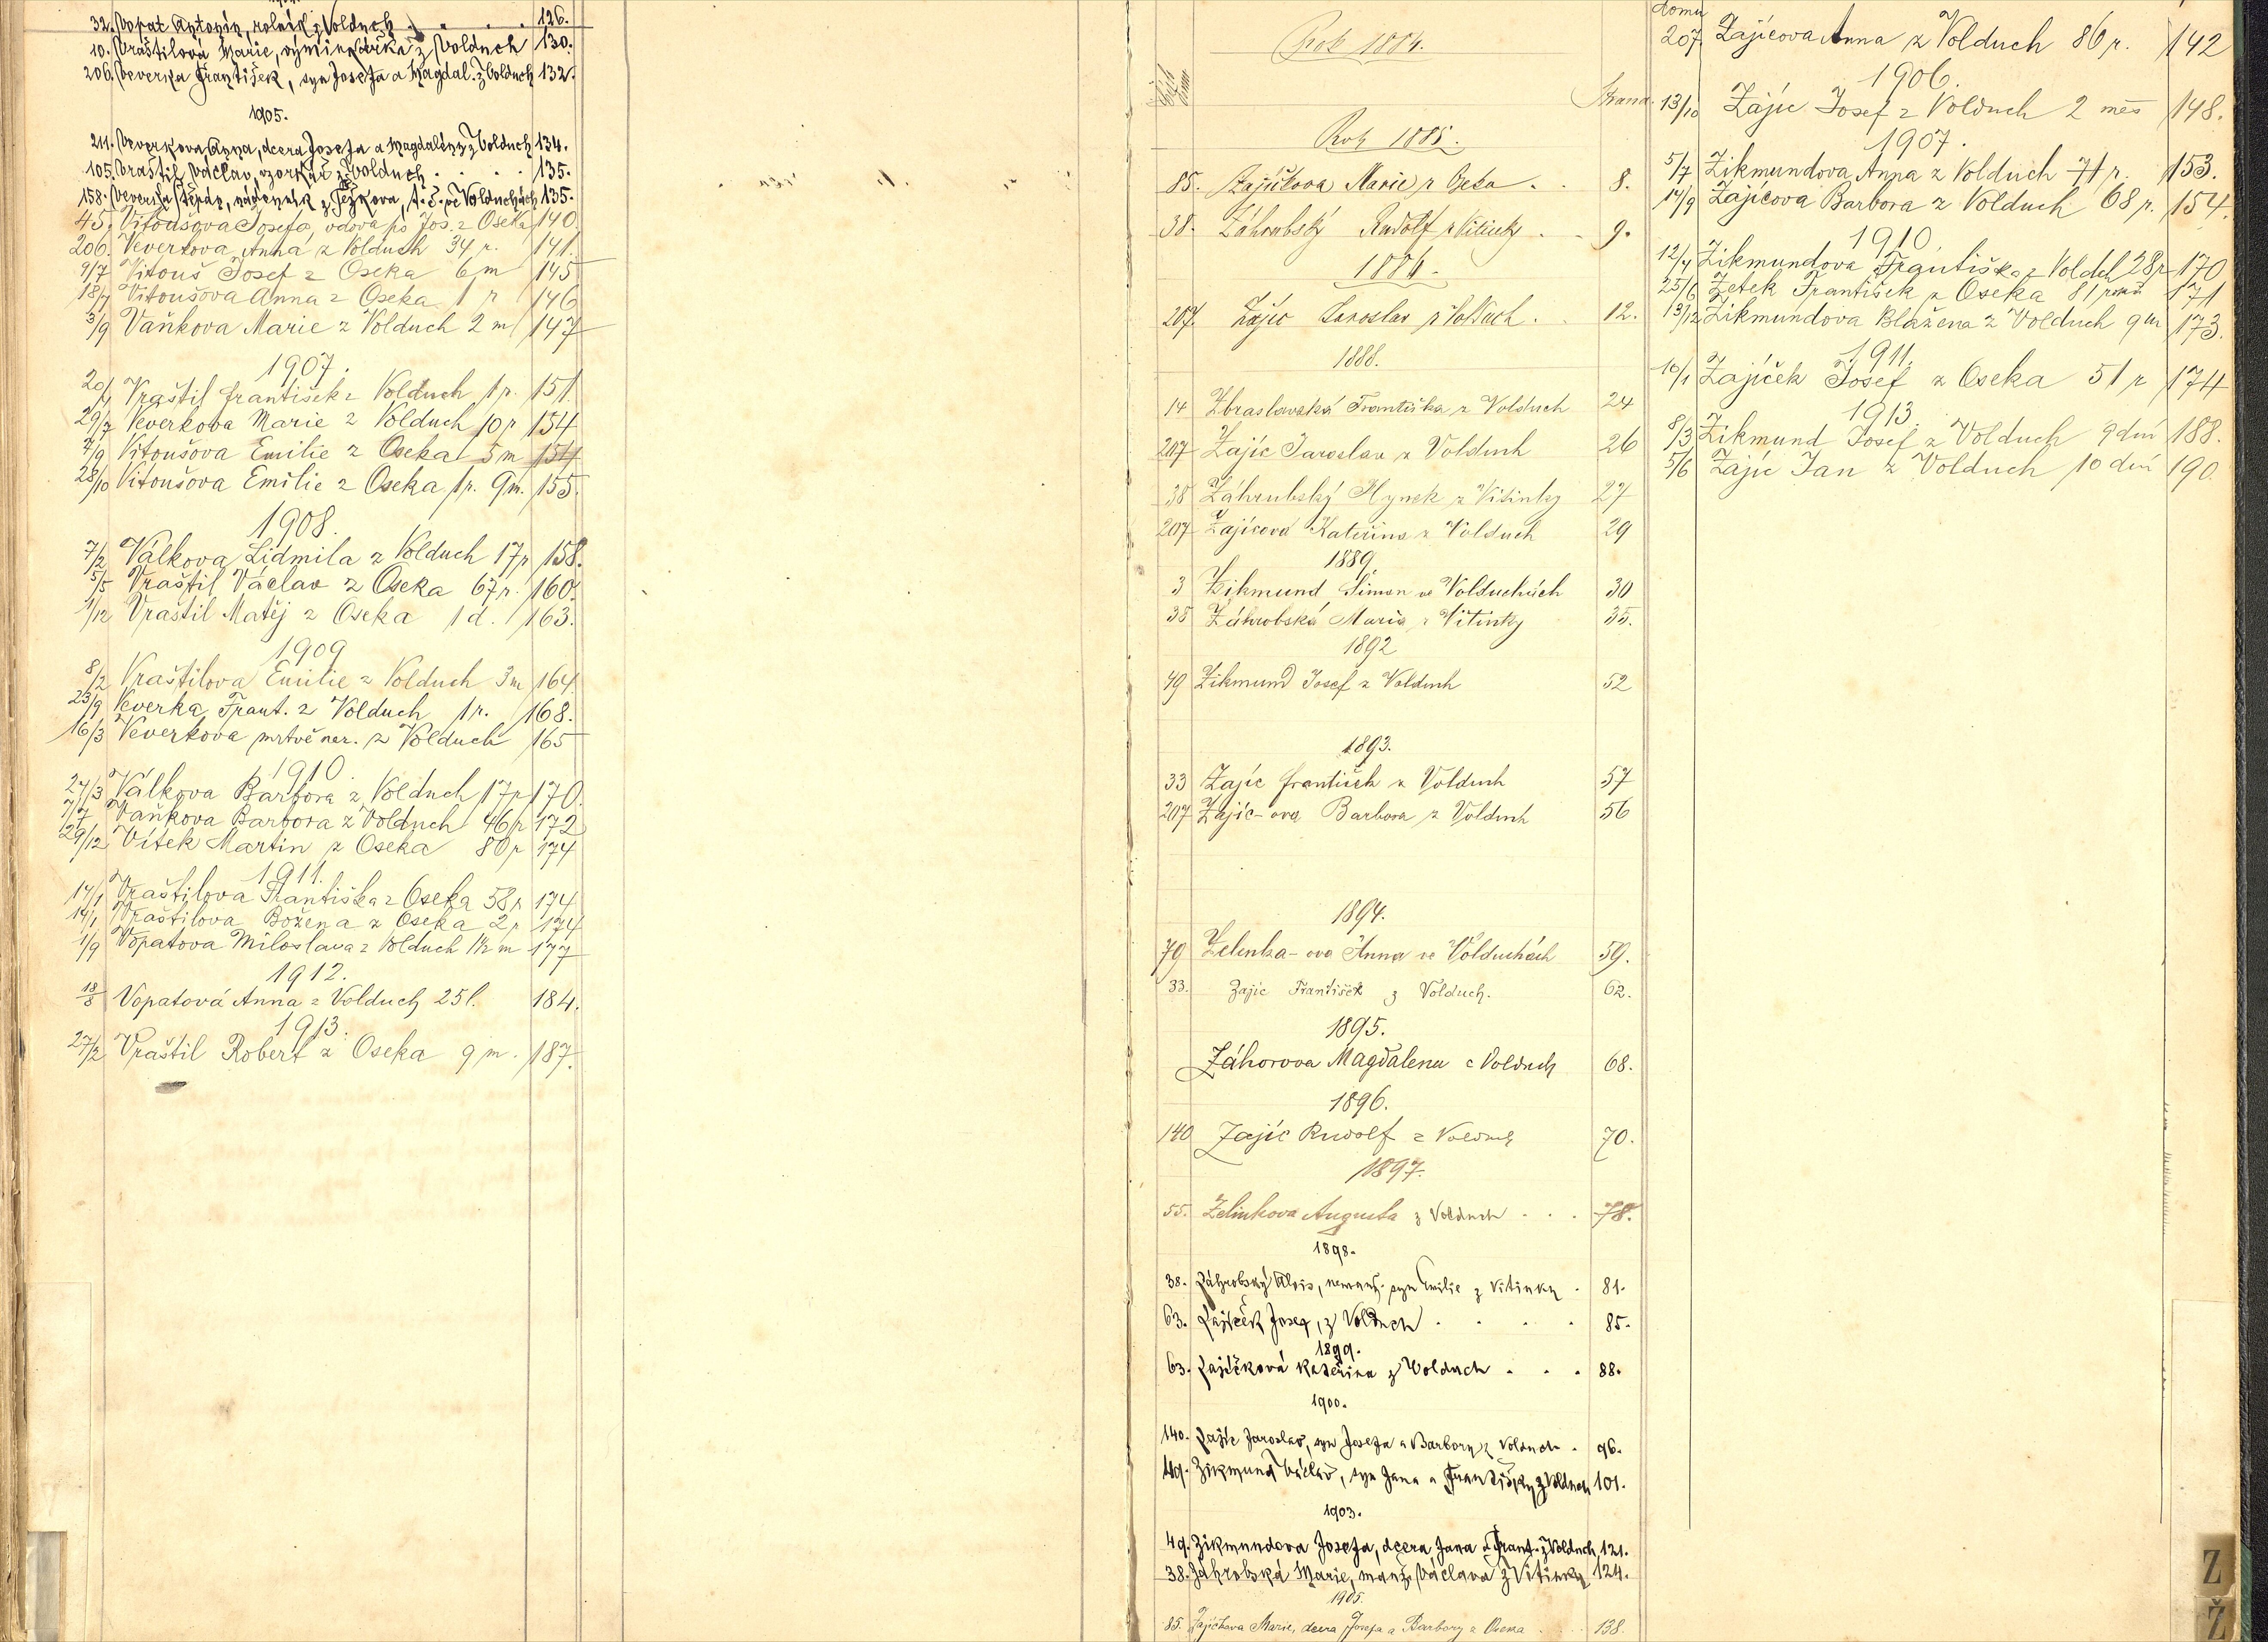 32. Vopat Antonín, rolník z Volduch . . . . 126.
10. Vraštilová Marie, výminkářka z Volduch 130.
206. Veverka František, syn Josefa a Magdal. z Volduch 132.
1905.
211. Veverkova Anna, dcera Josefa a Magdalény z Volduch 134.
105. Vraštil Václav, cvočkář z Volduch . . . . 135.
158. Veverka Štěpán, nádenník z Težkova, t. č. ve Volduchách 135.
45. Vitoušova Josefa, vdova po Jos. z Oseka 140
206. Veverkova Anna z Volduch 34 r. 141.
9/7 Vitouš Josef z Oseka 6 m 145
18/7 Vitoušova Anna z Oseka 1 r 146
3/9 Vaňkova Marie z Volduch 2 m 147
1907.
20/1 Vraštil František z Volduch 1 r. 151.
29/7 Veverkova Marie z Volduch 10 r 154
7/9 Vitoušova Emilie z Oseka 5 m 154
28/10 Vitoušova Emilie z Oseka 1 r. 9 m. 155.
1908.
7/2 Válkova Lidmila z Volduch 17 r 158.
5/5 Vraštil Václav z Oseka 67 r. 160.
1/12 Vraštil Matěj z Oseka 1 d. 163.
1909
8/2 Vraštilova Emilie z Volduch 3 m 164
23/9 Veverka Frant. z Volduch 1 r. 168.
16/3 Veverkova mrtvě nar. z Volduch 165
1910.
27/3 Válkova Barbora z Volduch 17 r 170.
7/7 Vaňkova Barbora z Volduch 46 r 172
29/12 Vítek Martin z Oseka 80 r 174
1911.
14/1 Vraštilova Františka z Oseka 58 r 174
14/1 Vraštilova Božena z Oseka 2 r 174
1/9 Vopatova Miloslava z Volduch 1½ m 177
1912.
18/8 Vopatová Anna z Volduch 25 l. 184.
1913.
27/2 Vraštil Robert z Oseka 9 m. 187.
Rok 1884.
Strana
Rok 1885.
85. Zajíčkova Marie z Oseka . . 8.
38. Záhrubský Rudolf z Vitinky . . 9.
1886.
207. Zajíc Jaroslav z Volduch . . 12.
1888.
14 Zbraslavská Františka z Volduch 24
207 Zajíc Jaroslav z Volduch 26
38 Záhrubský Hynek z Vitinky 27
207 Zajícová Kateřina z Volduch 29
1889.
3 Zikmund Šimon ve Volduchách 30
38 Záhrobská Marie z Vitinky 35.
1892
49 Zikmund Josef z Volduch 52
1893.
33 Zajíc František z Volduch 57
207 Zajíc-ova Barbora z Volduch 56
1894.
79 Zelenka-ova Anna ve Volduchách 59.
33. Zajíc František z Volduch. 62.
1895.
Záhorova Magdalena z Volduch 68.
1896.
140 Zajíc Rudolf z Volduch 70.
1897.
55. Zelinkova Augusta z Volduch . . . 78.
1898.
38. Záhrobský Alois, nemanž. syn Emilie z Vitinky . 81.
63. Zajíček Josef, z Volduch . . . . 85.
1899.
63. Zajíčková Kateřina z Volduch . . . 88.
1900.
140. Zajíc Jaroslav, syn Josefa a Barbory z Volduch . 96.
49. Zikmund Václav, syn Jana a Františky z Volduch 101.
1903.
49. Zikmundova Josefa, dcera Jana a Frant. z Volduch 121.
38. Záhrobská Marie, manž. Václava z Vitinky 124.
1905.
85. Zajíčkova Marie, dcera Josefa a Barbory z Oseka . . 138.
domu
207 Zajícova Anna z Volduch 86 r. 142
1906.
13/10 Zájíc Josef z Volduch 2 měs 148.
1907.
5/7 Zikmundova Anna z Volduch 71 r. 153.
14/9 Zajícova Barbora z Volduch 68 r. 154.
1910.
12/4 Zikmundova Františka z Voldch 28 r 170
25/6 Zetek František z Oseka 81 roků 171
13/12 Zikmundova Blažena z Volduch 9 m 173.
1911.
16/1 Zajíček Josef z Oseka 51 r 174
1913.
8/3 Zikmund Josef z Volduch 9 dní 188.
5/6 Zajíc Jan z Volduch 10 dní 190.
Z
Ž